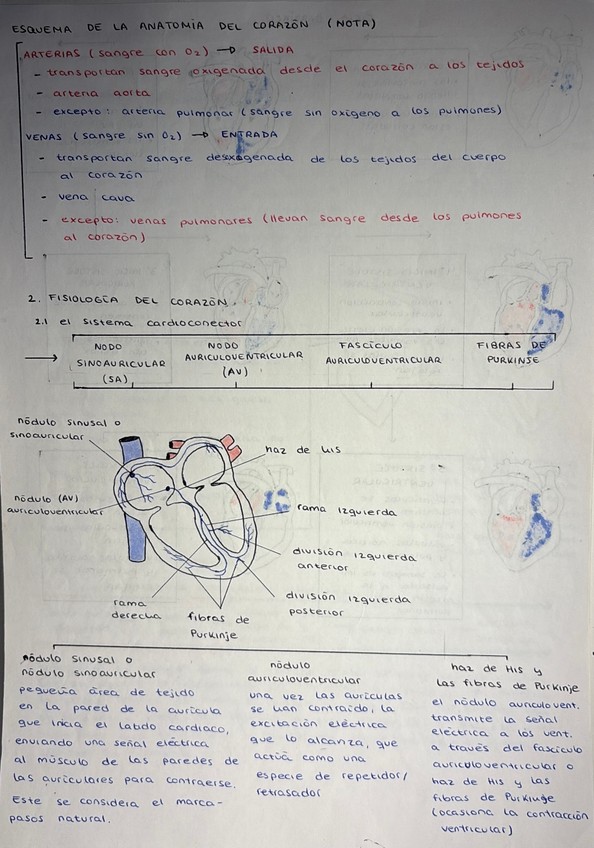 ESQUEMA DE LA ANATOMIA DEL CORAZÓN (NOTA)
ARTERIAS (sangre con O₂) → SALIDA
- transportan sangre oxigenada desde el corazón a los tejidos
- arteria aorta
- excepto: arteria pulmonar (sangre sin oxígeno a los pulmones)
VENAS (sangre sin O₂) → ENTRADA
- transportan sangre desoxigenada de los tejidos del cuerpo
al corazón
- vena cava
- excepto: venas pulmonares (llevan sangre desde los pulmones
al corazón)
2. FISIOLOGÍA DEL CORAZÓN.
2.1 el sistema cardioconector
→ NODO
SINOAURICULAR
(SA)
NODO
AURICULOVENTRICULAR
(AV)
FASCÍCULO
AURICULOVENTRICULAR
FIBRAS DE
PURKINSE
nódulo sinusal o
sinoauricular
haz de his
nódulo (AV)
auriculoventricular
rama izquierda
división izquierda
anterior
división izquierda
posterior
rama
derecha
fibras de
Purkinje
nódulo sinusal o
nódulo sinoauricular
pequeña área de tejido
en la pared de la aurícula
que inicia el latido cardiaco,
enviando una señal eléctrica
al músculo de las paredes de
las auriculares para contraerse.
Este se considera el marca-
pasos natural.
nódulo
auriculoventricular
una vez las aurículas
se han contraído, la
excitación eléctrica
que lo alcanza, que
actúa como una
especie de repetidor/
retrasador
haz de His y
las fibras de Purkinje
el nódulo auriculovent.
transmite la señal
eléctrica a los vent.
a través del fascículo
auriculoventricular o
haz de His y las
fibras de Purkinge
(ocasiona la contracción
ventricular)